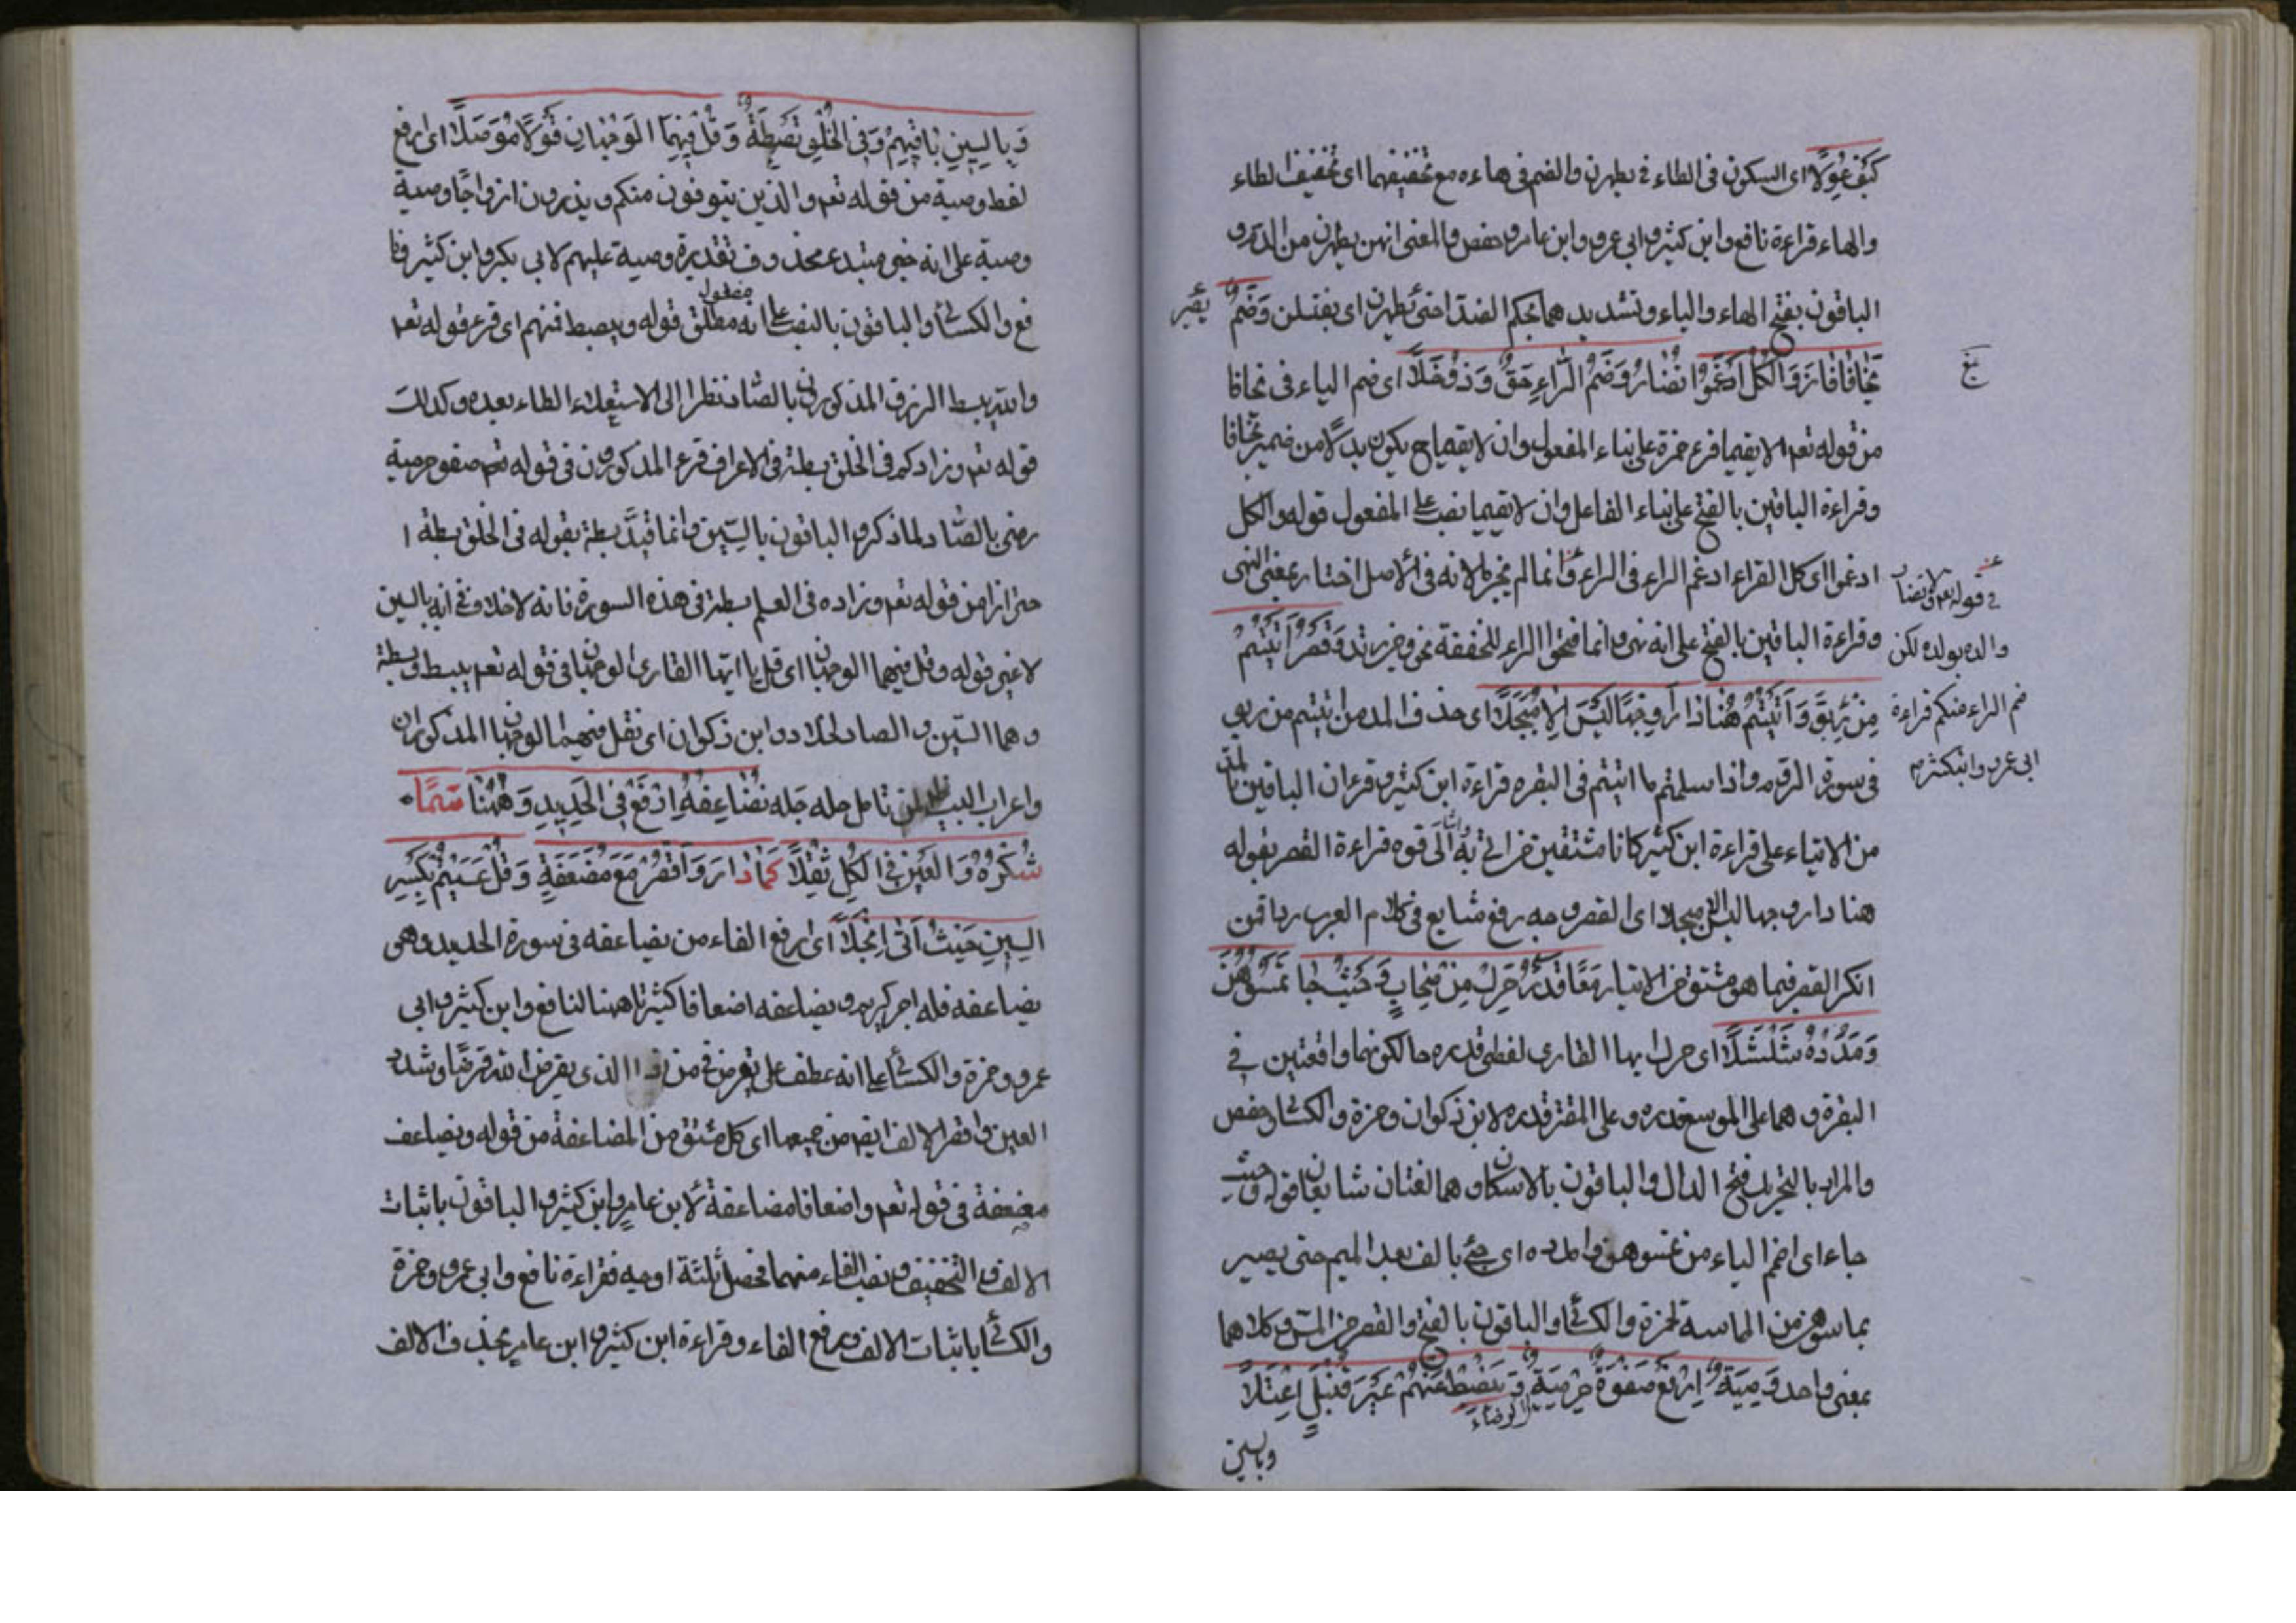 كَيْفَ عُوِّلَا اى السكون فى الطاء فى يطهرن والضم فى هاءه مع تخفيفهما اى تخفيف الطاء
والهاء قراءة نافع وابن كثير وابى عمرو وابن عامر وحفص والمعنى انهن يطهرن من الدم و
الباقون بفتح الهاء والياء وتشديدهما بحكم الضد اى حتى يطهرن اى يغتسلن وَضَمُّ
يَخَافَا فَازَ وَالْكُلُّ اَدْغَمُوا تُضَارَرْ وَضَمُّ الرَّاءِ حَقٌّ وَذُو جَلَا اى ضم الياء فى يخافا
من قوله تعم الا يقيما قرء حمزة على بناء المفعول وان لا يقيما ح يكون بدلا من ضمير يخافا
وقراءة الباقين بالفتح على بناء الفاعل وان لا يقيما نصب على المفعول قوله والكل
ادغموا اى كل القراء ادغم الراء فى الراء وانما لم يجز لانه فى الاصل اخبار بمعنى النهى
وقراءة الباقين بالفتح على انه نهى وانما فتحوا الراء للخفة نحو وَقَصْرُ اَتَيْتُمْ
مِنْ رِبًا وَ اَتَيْتُمُ هُنَا دَارَ وَجْهًا لَيْسَ اِلَّا مُبَجَّلَا اى حذف المد من اتيتم من ربى
فى سورة الروم واذا سلمتم ما اتيتم فى البقره قراءة ابن كثير وقرءان الباقين بالمد
من الايتاء على قراءة ابن كثير كانا مشتقين من اتى به الى قوه قراءة القصر بقوله
هنا دار وجها ليس الا مبجلا اى القصر وجه رفع شايع فى كلام العرب رداً لمن
انكر القصر فيما هو مشتق من الايتاء مَعًا قَدْرُ حَرِّكْ مِنْ صِحَابٍ وَحَيْثُ جَا تَمَسُّوهُنَّ
وَمَدُّدْهُ شُلْشُلَا اى حرك ايها القارى لفظى قدره حالكونهما واقعتين فى
البقرة وهما على الموسع قدره وعلى المقتر قدره لابن ذكوان وحمزة والكسائى وحفص
والمراد بالتحريك فتح الدال والباقون بالاسكان وهما لغتان شايعان قوله وحيث
جاء اى اضم الياء من تمسوهن وامدده اى جئ بالف بعد الميم حتى يصير
تماسوهن من المماسة لحمزة والكسائى والباقون بالفتح والقصر من المس وكلاهما
بمعنى واحد وَصِيَّةٌ اِرْفَعْ صَفْوَ حِرْمِيِّهِ رِضًى وَيَبْصُطُ عَنْهُمْ غَيْرَ قُنْبُلٍ اِعْتَلَا
وبالسين
فى قوله تعم لا تضار
والده بولده لكن
ضم الراء منكم قراءة
ابى عمرو وابنكثير
وَبِالسِّينِ بَاقِيهِمْ وَفِى الْخَلْقِ بَصْطَةً وَقُلْ فِيهِمَا الْوَجْهَانِ قَوْلًا مُوَصَّلَا اى رفع
لفظ وصية من قوله تعم والذين يتوفون منكم ويذرون ازواجا وصية
وصية على انه خبر مبتدء محذوف تقديره وصية عليهم لابى بكر وابن كثير ونا
فع والكسائى والباقون بالنصب على انه مفعول مطلق قوله ويبصط عنهم اى قرء قوله تعم
والله يبسط الرزق المذكورون بالصاد نظرا الى الاستعلاء الطاء بعده وكذلك
قوله تعم وزادكم فى الخلق بسطة فى الاعراف قرء المذكورون فى قوله تعم صفو حرميه
رضى بالصاد لما ذكر والباقون بالسين وانما قيد بسطة بقوله فى الخلق بسطة ا
حترازا من قوله تعم وزاده فى العلم بسطة فى هذه السورة فانه لا خلاف فى انه بالسين
لا غير قوله وقل فيهما الوجهان اى قل يا ايها القارى الوجهان فى قوله تعم يبسط وبسطة
وهما السين والصاد لخلاد وابن ذكوان اى نقل فيهما الوجهان المذكوران
واعراب البيت يظهر لمن تامل جمله جمله يُضَاعِفُهُ ارْفَعْ فِى الْحَدِيدِ وَهٰهُنَا سَمَا
شُكْرُهُ وَالْعَيْنُ فِى الْكُلِّ ثُقِّلَا كَمَا دَارَ وَاقْصُرْ مَعَ مُضَعَّفَةٍ وَقُلْ عَسَيْتُمْ بِكَسْرِ
السِّينِ حَيْثُ اَتٰى انْجَلَا اى رفع الفاء من يضاعفه فى سورة الحديد وهى
يضاعفه فله اجر كريم ويضاعفه اضعافا كثيرة ههنا لنافع وابن كثير وابى
عمرو وحمزة والكسائى على انه عطف على يقرض فى من ذا الذى يقرض الله قرضا وشدد
العين واقصر الالف ايضا من جميعها اى كل مشتق من المضاعفة من قوله ويضاعف
مضعفة فى قوله تعم واضعافا مضاعفة لابن عامر وابن كثير والباقون باثبات
الالف والتخفيف ونصب الفاء منهما فحصل ثلثة اوجه فقراءة نافع وابى عمرو وحمزة
والكسائى باثبات الالف ورفع الفاء وقراءة ابن كثير وابن عامر بحذف الالف